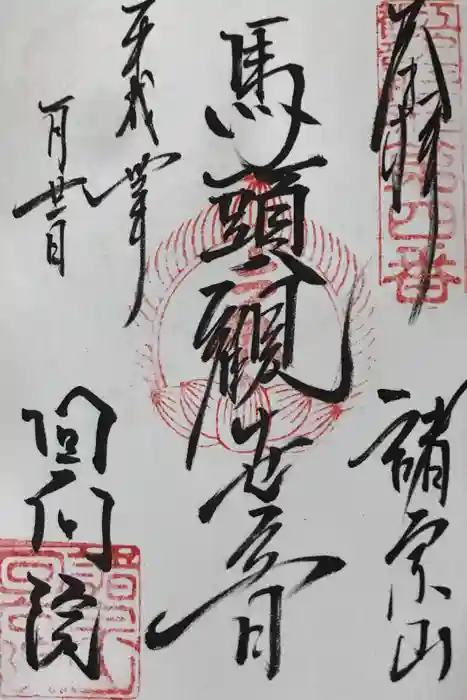 奉拝
諸宗山
馬頭観世音
平成 年
一月廿一日
回向院